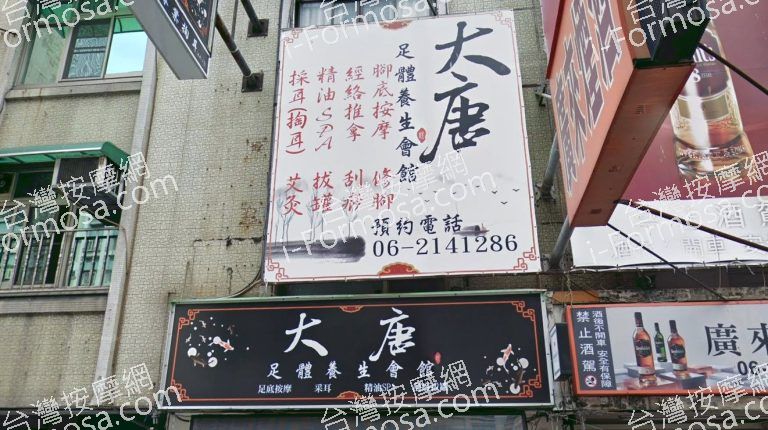 大唐
足體養生會館
腳底按摩 修腳
經絡推拿 刮痧
精油SPA 拔罐
採耳(掏耳) 艾灸
預約電話
06-2141286
大唐
足體養生會館
足底按摩 采耳 精油SPA
廣來
06
禁止酒駕
酒後不開車 安全有保障
台灣按摩網
i-Formosa.com